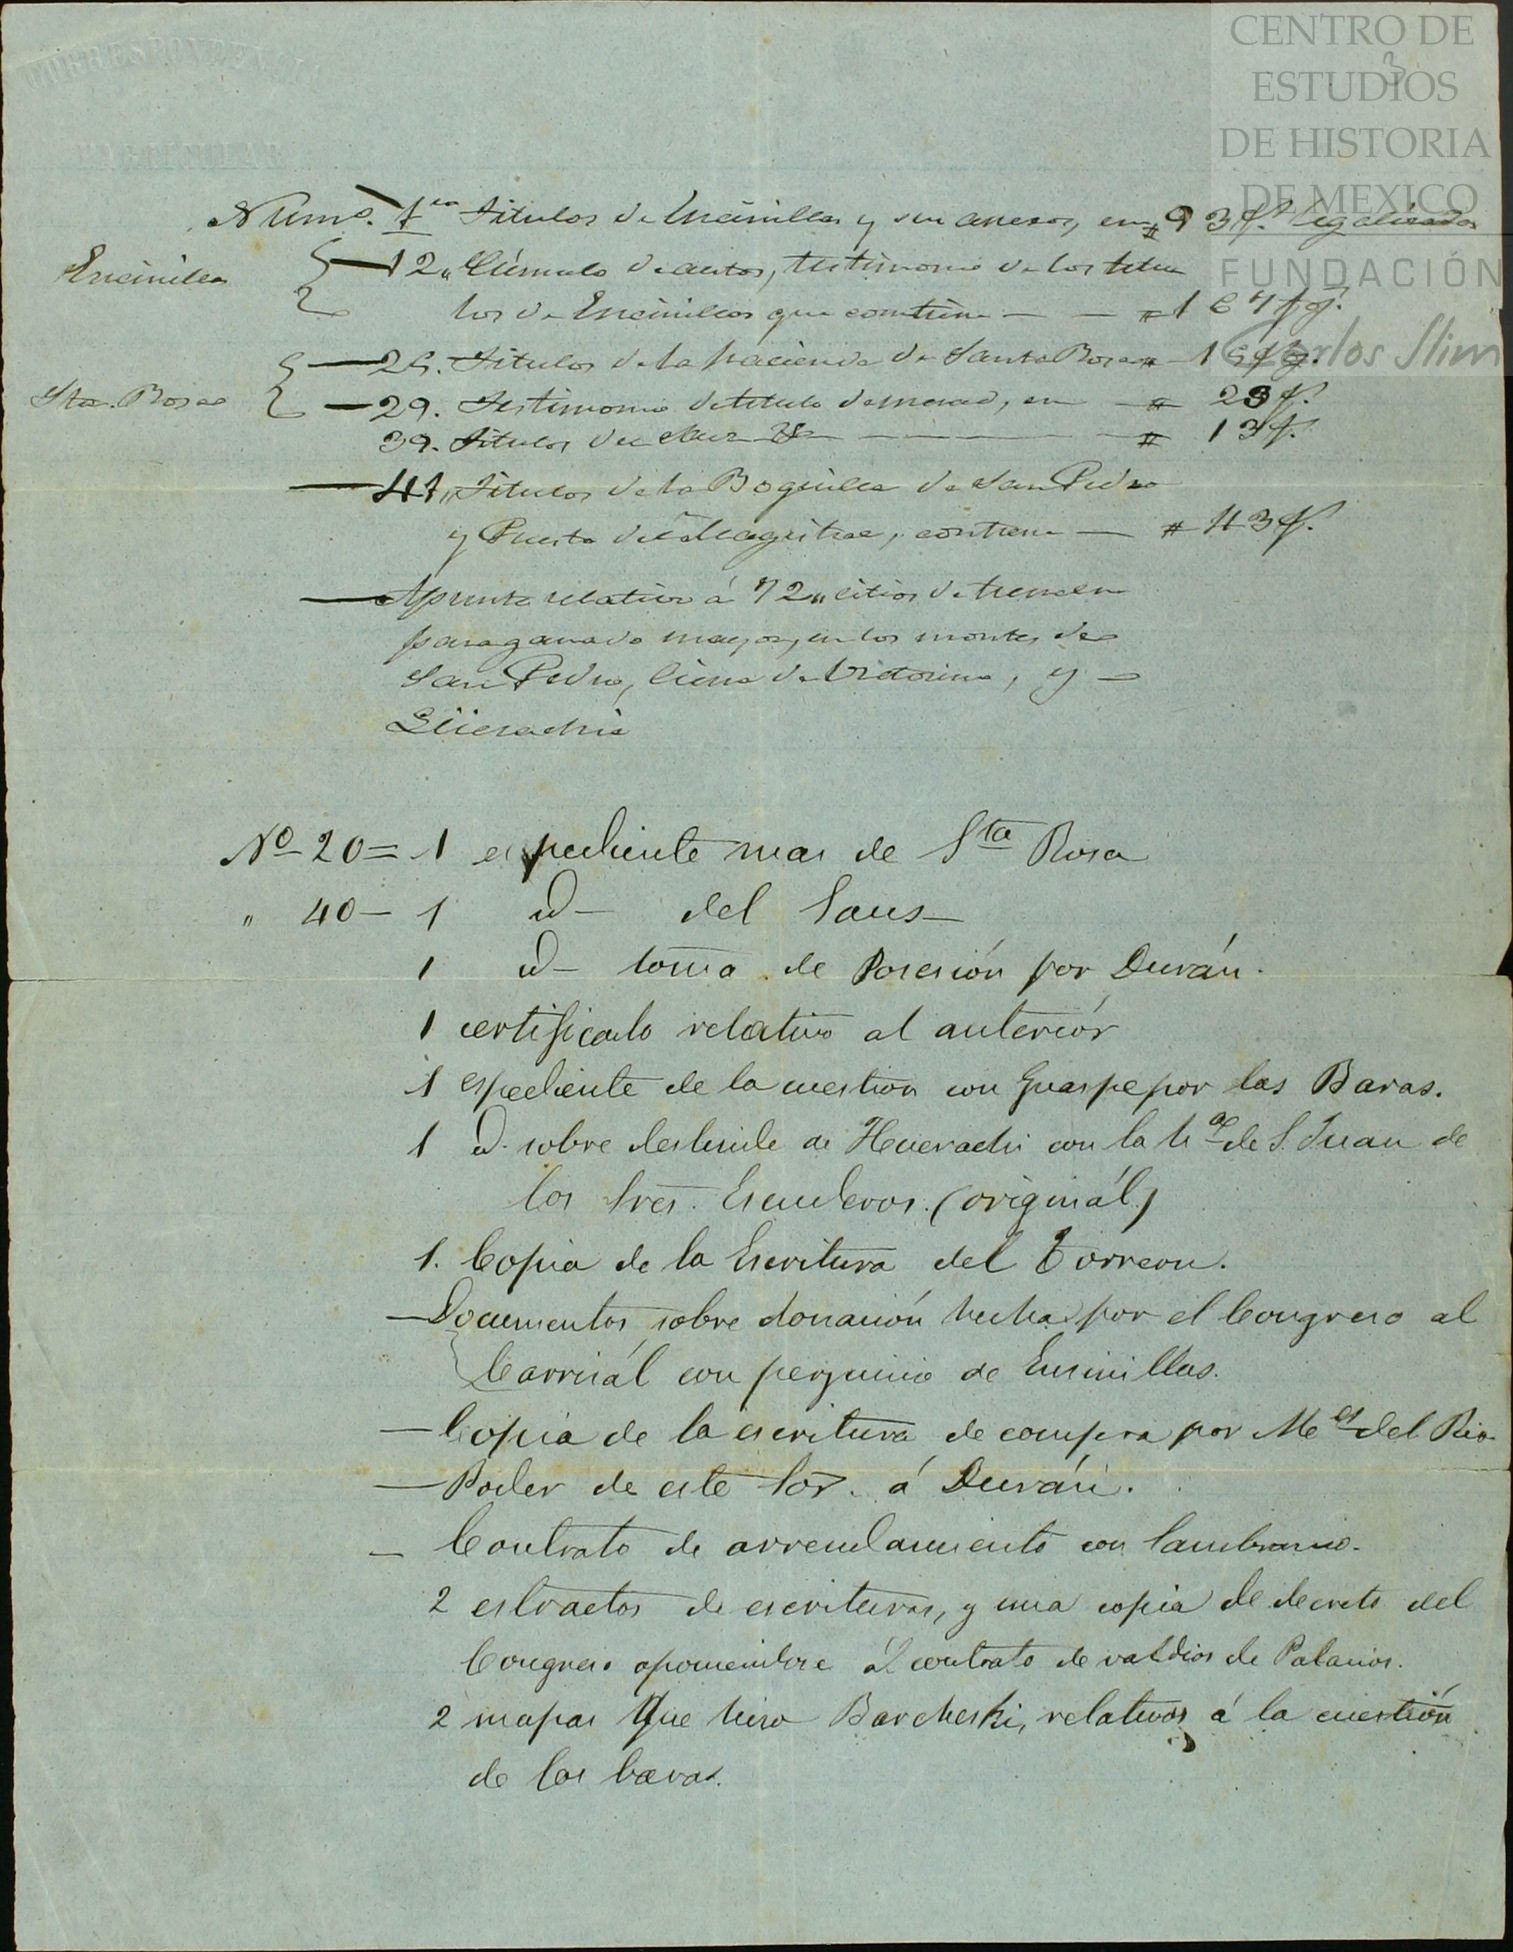 CORRESPONDENCIA
PARTICULAR
CENTRO DE
ESTUDIOS
DE HISTORIA
DE MEXICO
FUNDACIÓN
Carlos Slim
3
Numo. 1os Titulos de Encinillas y sus anexos, en # 93 fs. legalizados
Encinillas
12„ Cúmulo de autos, testimonio de los titu
los de Encinillas que contiene — — # 167 fs.
Sta. Rosa
25. Titulos de la hacienda de Santa Rosa # 15 fs.
29. Testimonio de titulo de merced, en — # 23 f.
39. Titulos del Saus — # 13 f.
41„ Titulos de la Boquilla de San Pedro
y Puerto de Magritas, contiene — # 43 f.
— Apunte relativo á 72„ sitios de tierra
para ganado mayor, en los montes de
San Pedro, Cieneg de Victorino, y —
Güerachic
No 20 = 1 espediente mas de Sta Rosa
„ 40 – 1 id – del Saus –
1 id – toma de Posesión por Durán.
1 certificado relativo al anteriór
1 espediente de la cuestion con Guaspe por las Baras.
1 id. sobre deslinde de Huerachi con la Hda de S. Juan de
los Sres. Escuderos. (originál)
1. Copia de la Escritura del Torreon.
— Documentos sobre donación hecha por el Congreso al
Carrisál con perjuicio de Ensinillas.
— Copia de la escritura de compra por Mes del Rio.
— Poder de este Sor. á Durán.
— Contrato de arrendamiento con Sambrano.
2 estractos de escrituras, y una copia de decreto del
Congreso oponiendose ál contrato de valdios de Palacios.
2 mapas que hiso Barcheski, relativos á la cuestión
de las baras.